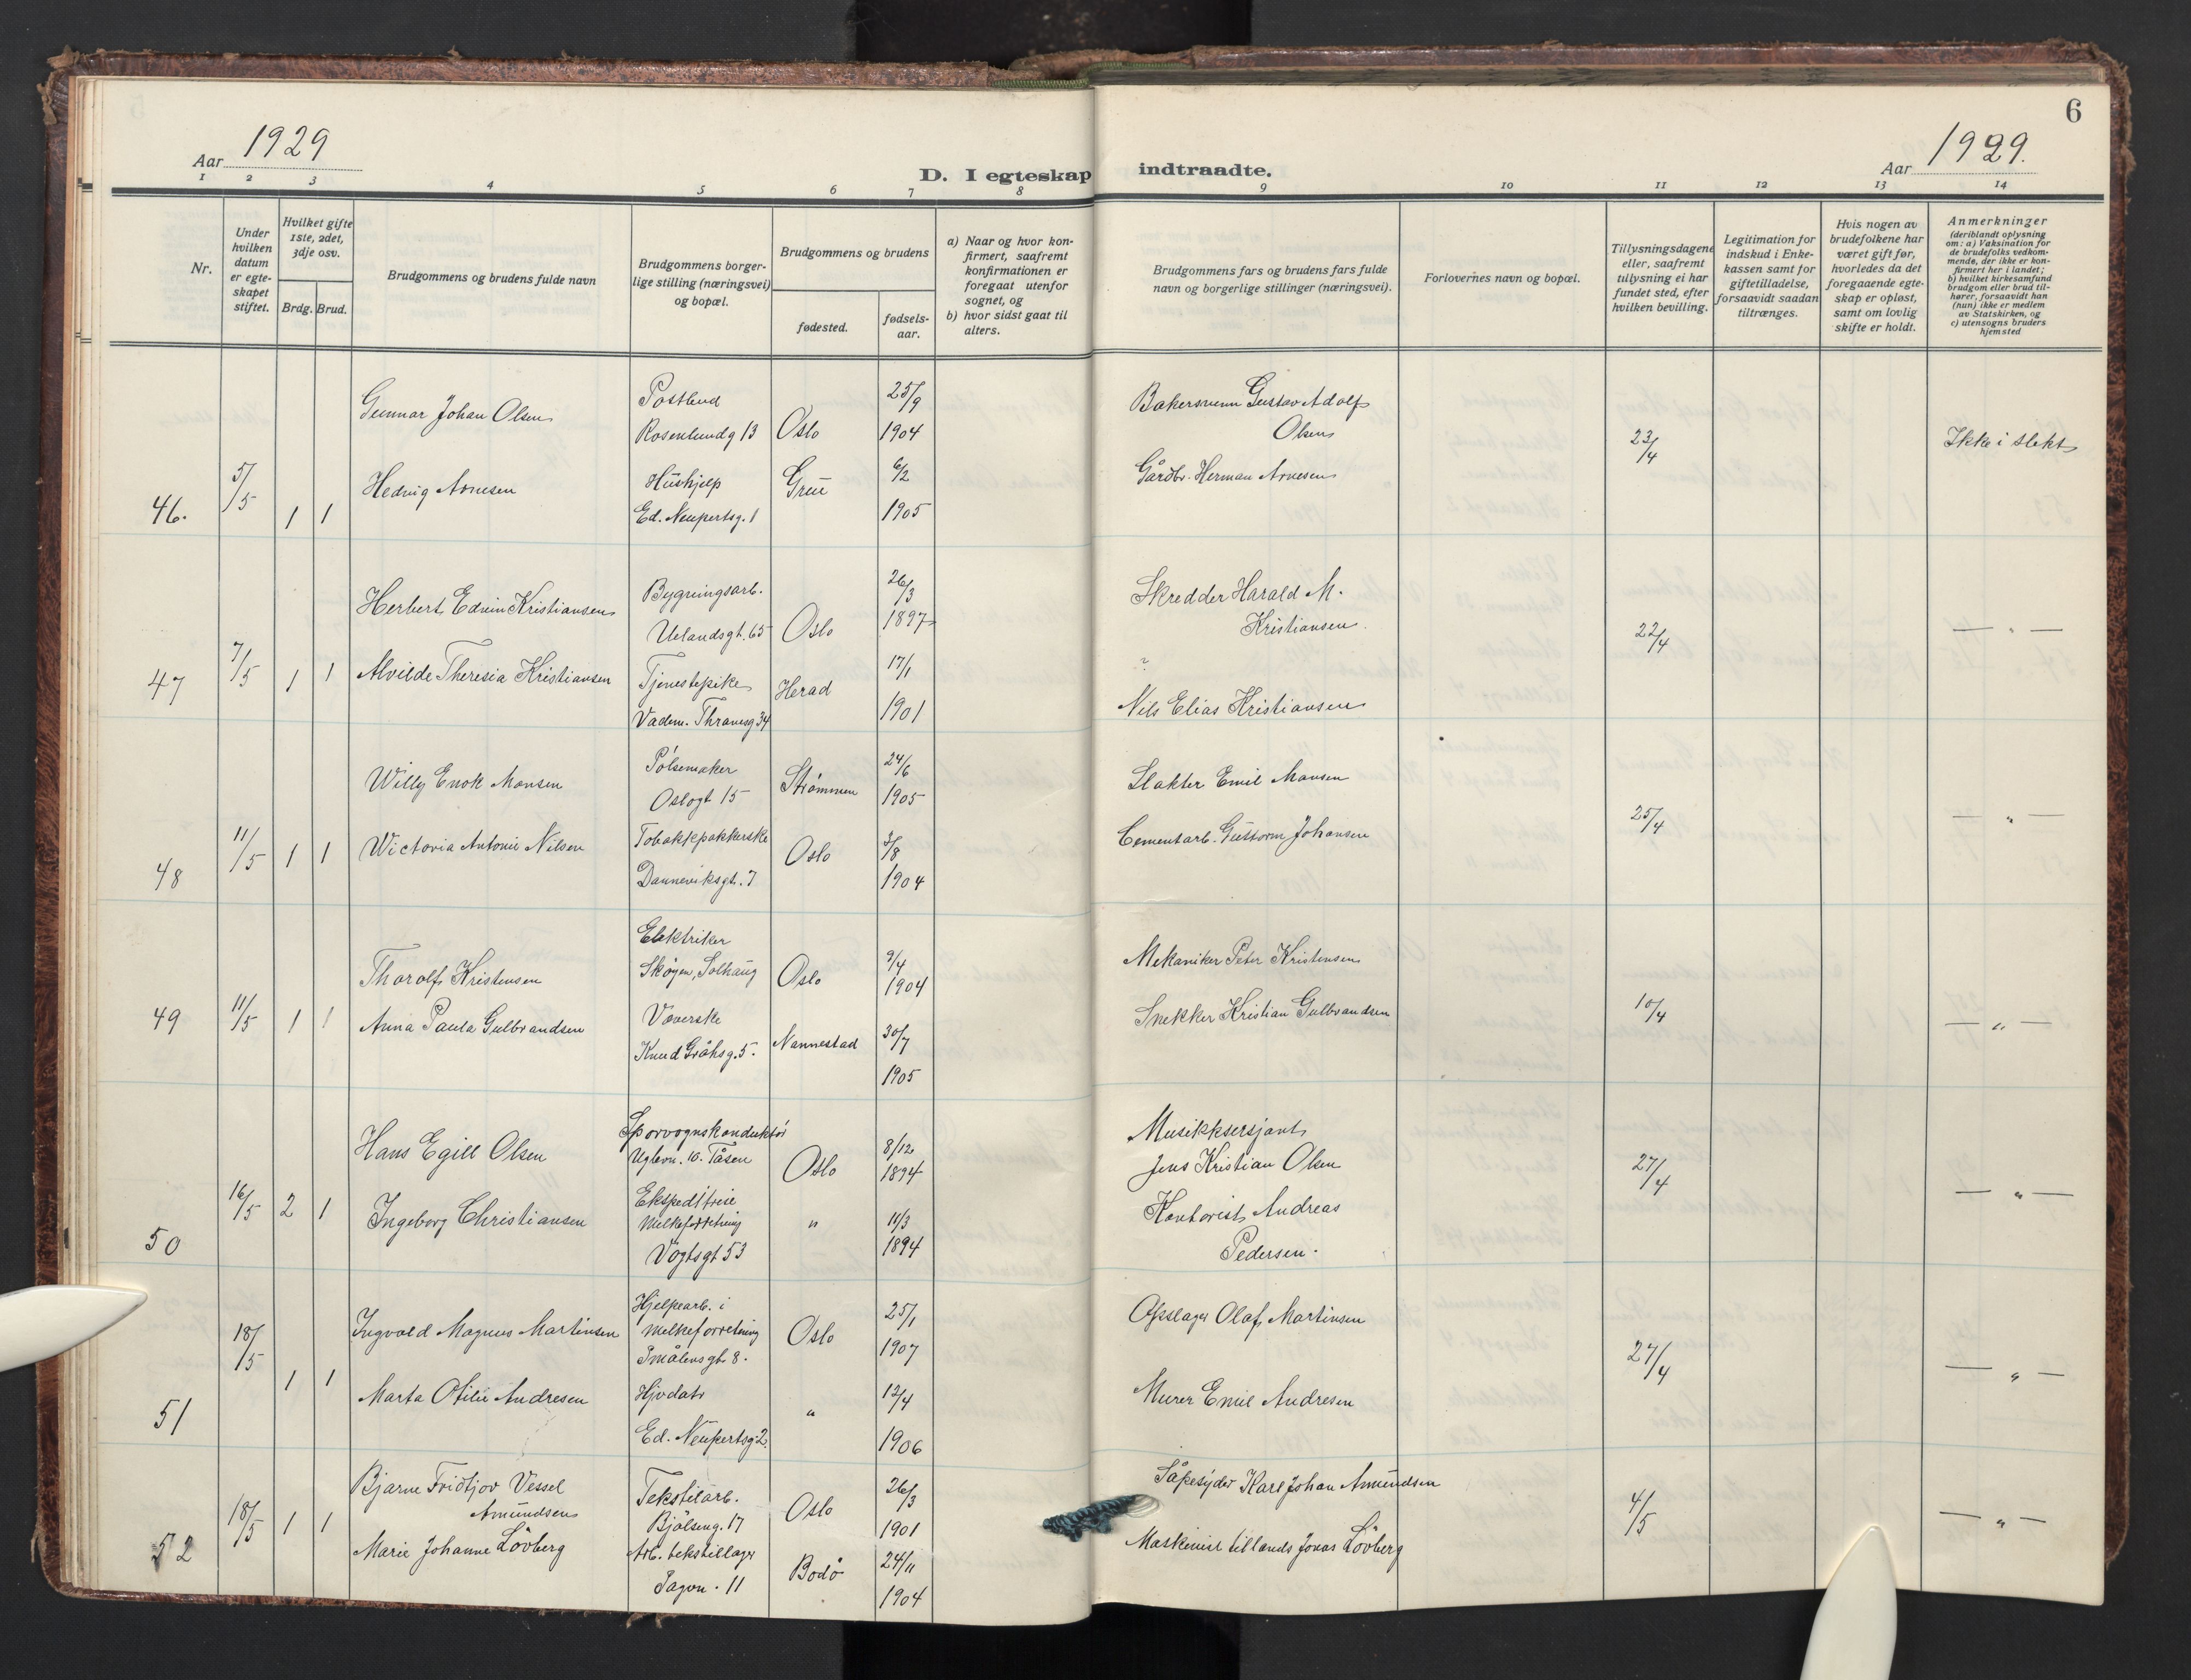 6
Aar 1929
Aar 1929.
D. I egteskap indtraadte.
1 2 3 4 5 6 7 8 9 10 11 12 13 14
Nr.
Under
hvilken
datum
er egte-
skapet
stiftet.
Hvilket gifte
1ste, 2det,
3dje osv.
Brdg. Brud.
Brudgommens og brudens fulde navn
Brudgommens borger-
lige stilling (næringsvei)
og bopæl.
Brudgommens og brudens
fødested.
fødsels-
aar.
a) Naar og hvor kon-
firmert, saafremt
konfirmationen er
foregaat utenfor
sognet, og
b) hvor sidst gaat til
alters.
Brudgommens fars og brudens fars fulde
navn og borgerlige stillinger (næringsvei).
Forlovernes navn og bopæl.
Tillysningsdagene
eller, saafremt
tillysning ei har
fundet sted, efter
hvilken bevilling.
Legitimation for
indskud i Enke-
kassen samt for
giftetilladelse,
forsaavidt saadan
tiltrænges.
Hvis nogen av
brudefolkene har
været gift før,
hvorledes da det
foregaaende egte-
skap er opløst,
samt om lovlig
skifte er holdt.
Anmerkninger
(deriblandt oplysning
om: a) Vaksination for
de brudefolks vedkom-
mende, der ikke er kon-
firmert her i landet;
b) hvilket kirkesamfund
brudgom eller brud til-
hører, forsaavidt han
(hun) ikke er medlem
av Statskirken, og
c) utensogns bruders
hjemsted
46. 5/5 1 1
Gunnar Johan Olsen
Postbud
Rosenlundg 13
Oslo
25/9
1904
Bakersvenn Gustav Adolf
Olsen
23/4
Ikke i slekt
Hedvig Arnesen
Hushjelp
Ed. Neupertsg. 1
Grue
6/2
1905
Gårdbr. Herman Arnesen
47 7/5 1 1
Herbert Edvin Kristiansen
Bygningsarb.
Uelandsgt. 65
Oslo
26/3
1897
Skredder Harald M.
Kristiansen.
22/4
— " —
Alvilde Theresia Kristiansen
Tjenestepike
Vadem. Thranesg 34
Herad
17/1
1901
?
Nils Elias Kristiansen
48 11/5 1 1
Willy Enok Monsen
Pølsemaker
Oslogt 15
Strømmen
24/6
1905
Slakter Emil Monsen
25/4
— " —
Wictoria Antonie Nilsen
Tobakkpakkerske
Danneviksgt. 7
Oslo
3/8
1904
Cementarb. Guttorm Johansen
49 11/5 1 1
Thorolf Kristensen
Elektriker
Skøyen, Solhaug
Oslo
9/4
1904
Mekaniker Peter Kristensen
10/4
— " —
Anna Paula Gulbrandsen
Væverske
Knud Gråhsg. 5.
Nannestad
30/7
1905
Snekker Kristian Gulbrandsen
50 16/5 2 1
Hans Egill Olsen
Sporvognskonduktør
Uglevn. 10. Tåsen
Oslo
8/12
1894
Musikksersjant
Jens Kristian Olsen
27/4
— " —
Ingeborg Christiansen
Ekspeditrise
Melkeforretning
Vogtsgt 53
"
11/3
1894
Kontorist Andreas
Pedersen.
51 18/5 1 1
Ingvald Magnus Martinsen
Hjelpearb. i
melkeforretning
Smålensgt 8.
Oslo
25/1
1907
Opslager Olaf Martinsen
27/4
— " —
Marta Otilie Andresen
Hj.datr
Ed. Neupertsg. 2.
"
12/4
1906
Murer Emil Andresen
52 18/5 1 1
Bjarne Fridtjov Vessel
Amundsen
Tekstilarb.
Bjølseng. 17
Oslo
26/3
1901
Såpesyder Karl Johan Amundsen
4/5
— " —
Marie Johanne Løvberg
Arb. tekstillager
Sagvn. 11
Bodø
24/11
1904
Maskinist tillands Jonas Løvberg